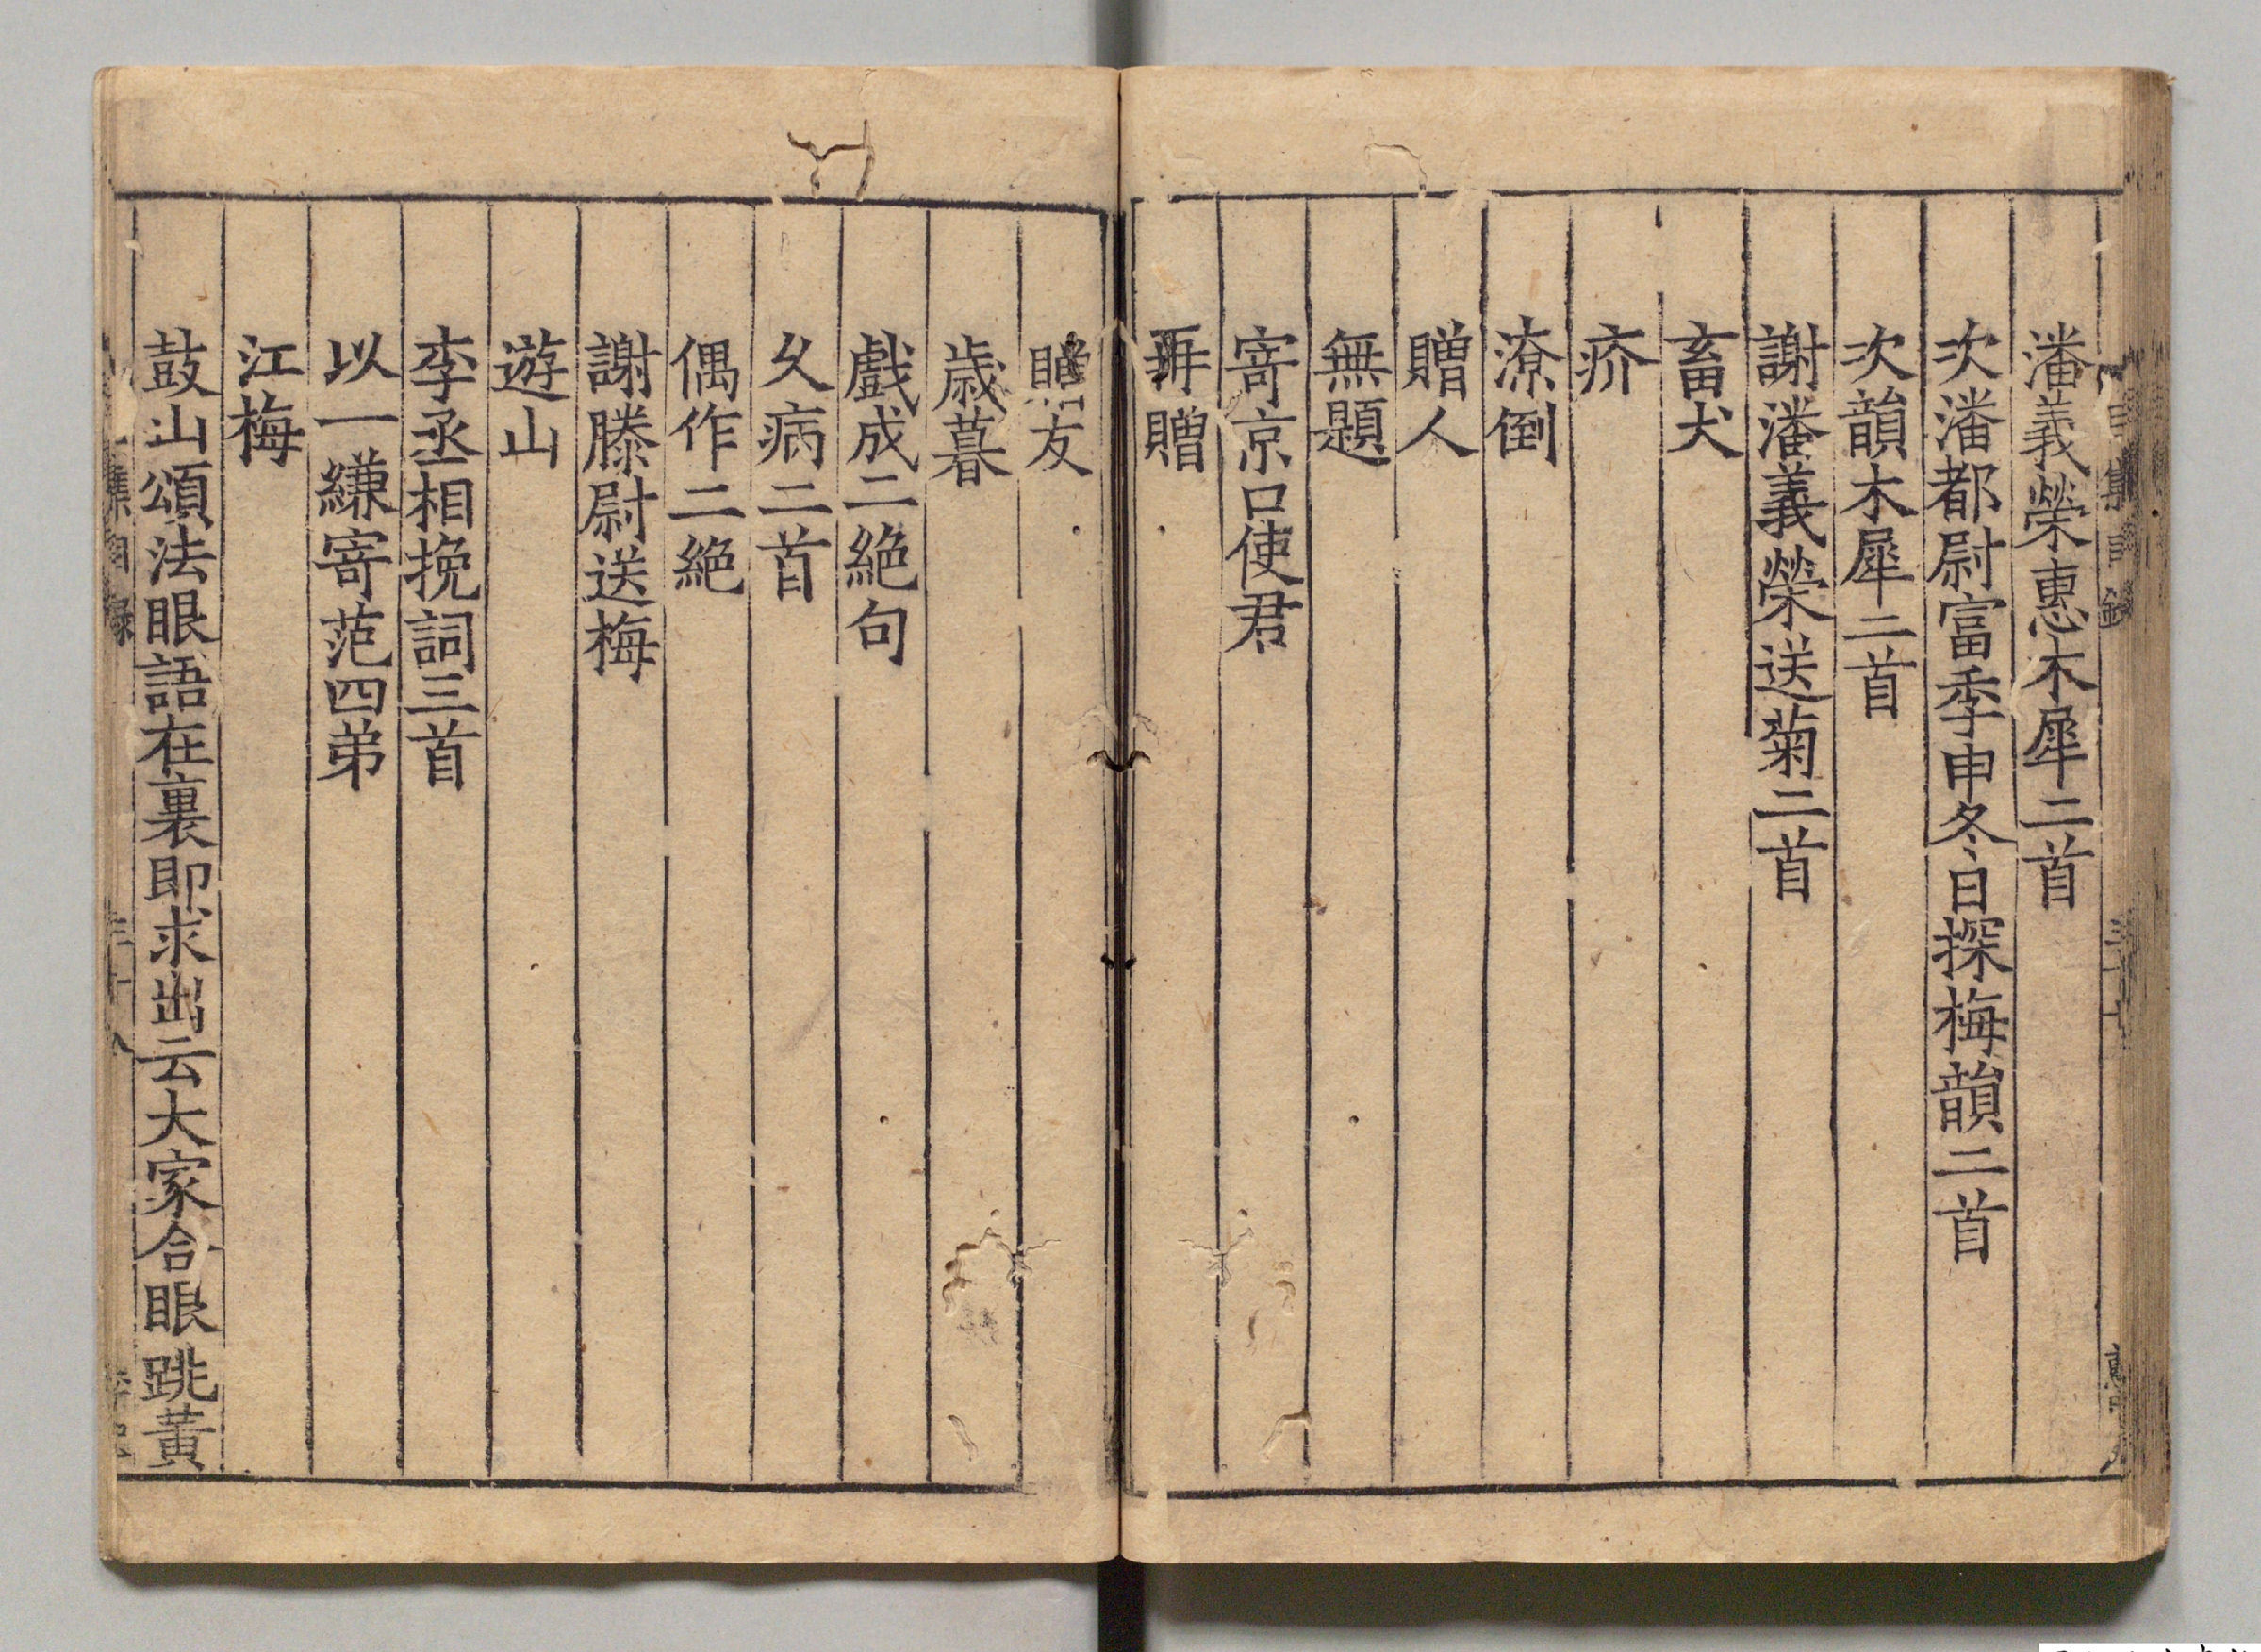 潘義榮惠木犀二首
次潘都尉富季申冬日探梅韻二首
次韻木犀二首
謝潘義榮送菊二首
畜犬
疥
潦倒
贈人
無題
寄京口使君
再贈
贈友
歲暮
戲成二絕句
久病二首
偶作二絕
謝滕尉送梅
遊山
李丞相挽詞三首
以一縑寄范四弟
江梅
鼓山頌法眼語在裏即求出云大家合眼跳黃
集目錄